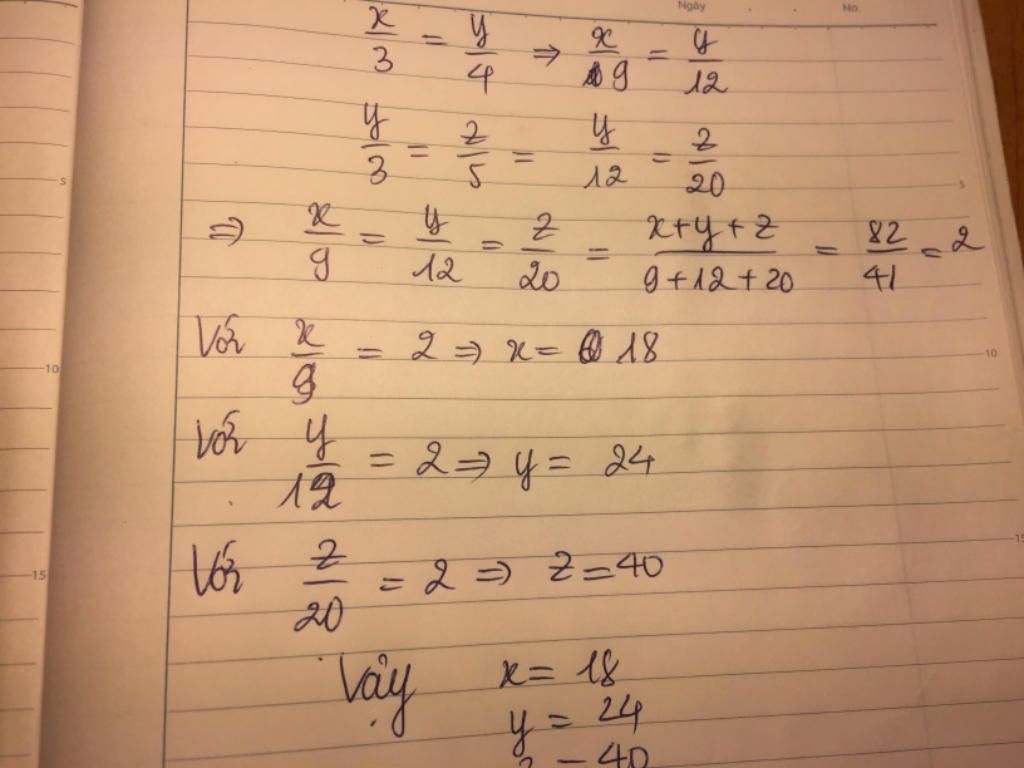 Ngày . . No.
x/3 = y/4 ⇒ x/9 = y/12
y/3 = z/5 = y/12 = z/20
⇒ x/9 = y/12 = z/20 = (x+y+z)/(9+12+20) = 82/41 = 2
Với x/9 = 2 ⇒ x = 18
Với y/12 = 2 ⇒ y = 24
Với z/20 = 2 ⇒ z = 40
Vậy x = 18
y = 24
z = 40
5
10
15
5
10
15